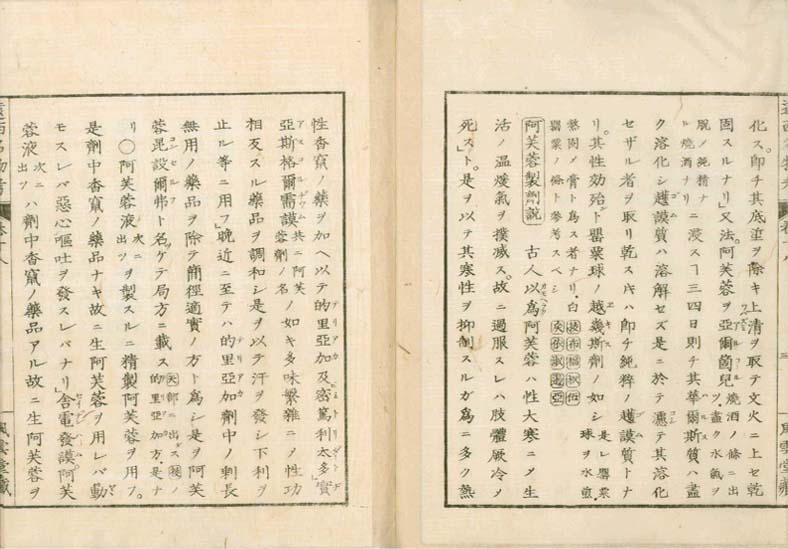 化ス。即チ其底垽ヲ除キ上清ヲ取テ文火ニ上セ乾
固スルナリ」又法。阿芙蓉ヲ亜爾箇児 焼酒ノ條ニ出ツ。盡ク水氣ヲ
脱ノ純精ナル焼酒ナリ ニ浸スヿ三四日則チ其華爾斯質ハ盡
ク溶化シ越謨質ハ溶解セズ是ニ於テ濾テ其溶化
セザル者ヲ取リ乾スキハ即チ純粋ノ越謨質トナ
リ。其性効殆ド罌粟球ノ越幾斯劑ノ如シ 是レ罌粟球ヲ水煎
熬固メ膏ト為ス者ナリ。白罌粟ノ條ト参考スベシ
阿芙蓉製劑説 古人以為阿芙蓉ハ性大寒ニメ生
活ノ温煖氣ヲ撲滅ス。故ニ過服スレハ肢體厥冷メ
死スト。是ヲ以テ其寒性ヲ抑制スルガ為ニ多ク熱
性香竄ノ藥ヲ加ヘ以テ的里亜加及密篤利太多」實
亜斯格爾需謨 共ニ阿芙蓉劑ノ名 ノ如キ多味繁雑ニメ性功
相反スル藥品ヲ調和シ是ヲ以テ汗ヲ發シ下利ヲ
止ル等ニ用フ」晩近ニ至テハ的里亜加劑中ノ剰長
無用ノ藥品ヲ除テ簡徑適實ノ方ト為シ是ヲ阿芙
蓉毘設爾弗ト名ケテ局方ニ載ス 的里亜加方。是ナ
リ〇阿芙蓉液 次ニ出ツ ヲ製スルニ精製阿芙蓉ヲ用フ。
是劑中香竄ノ藥品ナキ故ニ生阿芙蓉ヲ用レバ動
モスレバ惡心嘔吐ヲ發スレバナリ」舎電發謨阿芙
蓉液 次ニ出ツ ハ劑中香竄ノ藥品アル故ニ生阿芙蓉ヲ
風雲堂藏